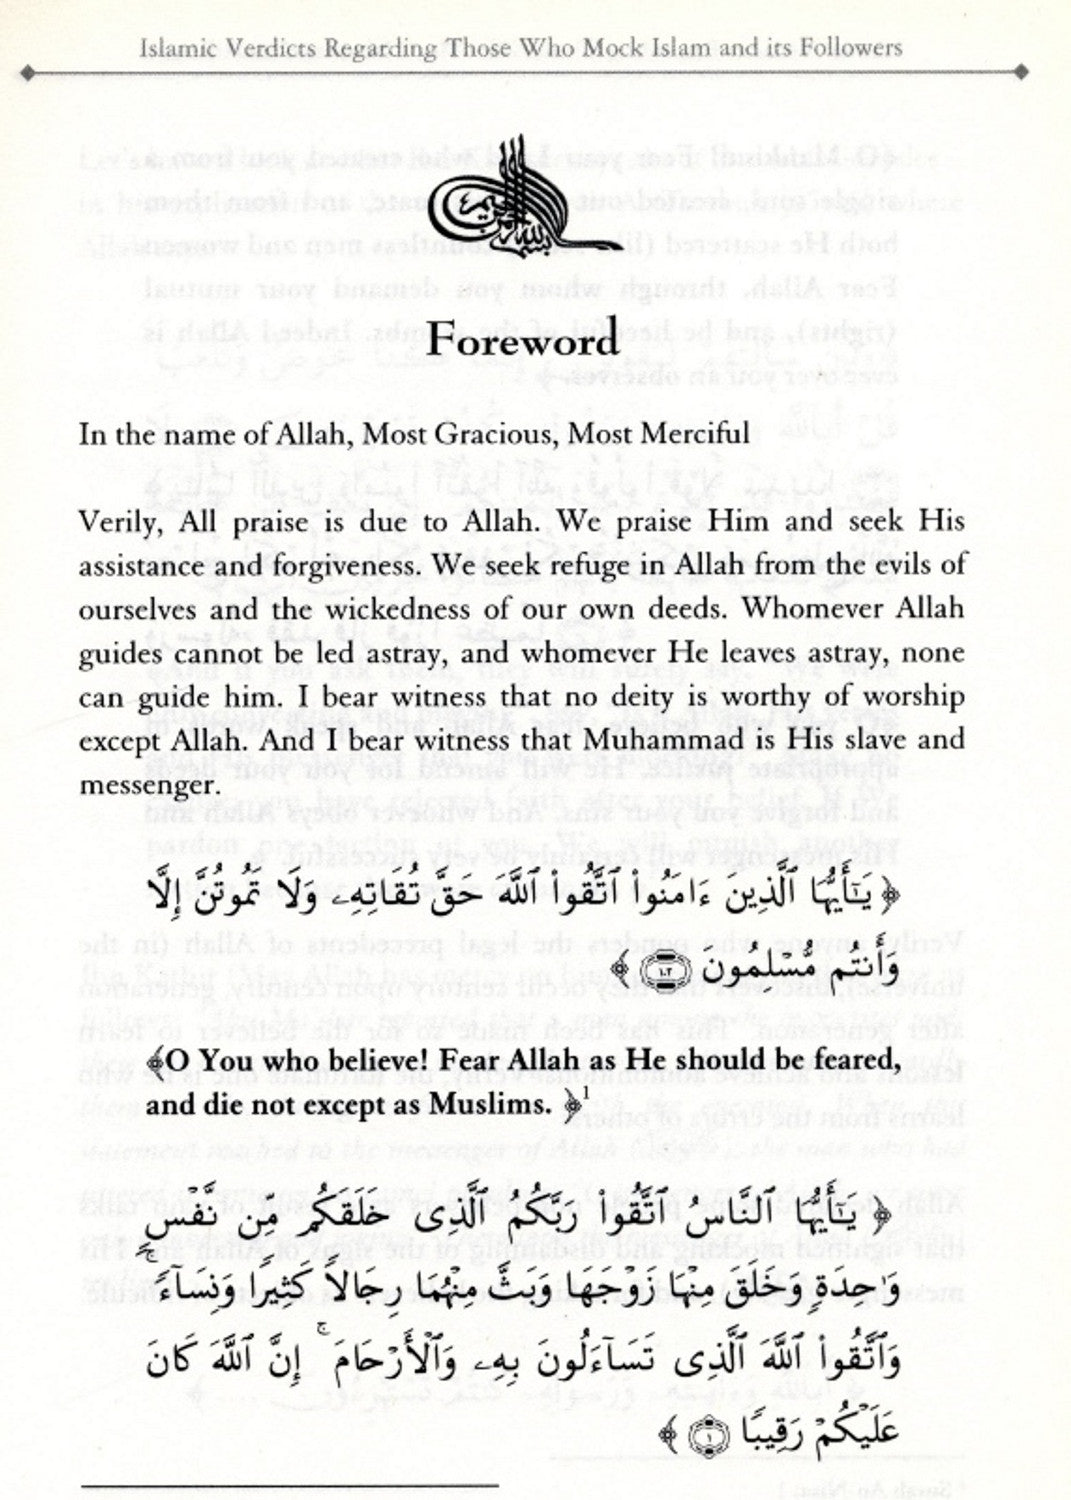 Islamic Verdicts Regarding Those Who Mock Islam and its Followers
Foreword
In the name of Allah, Most Gracious, Most Merciful
Verily, All praise is due to Allah. We praise Him and seek His
assistance and forgiveness. We seek refuge in Allah from the evils of
ourselves and the wickedness of our own deeds. Whomever Allah
guides cannot be led astray, and whomever He leaves astray, none
can guide him. I bear witness that no deity is worthy of worship
except Allah. And I bear witness that Muhammad is His slave and
messenger.
﴿ يَٰٓأَيُّهَا ٱلَّذِينَ ءَامَنُوا۟ ٱتَّقُوا۟ ٱللَّهَ حَقَّ تُقَاتِهِۦ وَلَا تَمُوتُنَّ إِلَّا
وَأَنتُم مُّسْلِمُونَ ١٠٢ ﴾
﴾O You who believe! Fear Allah as He should be feared,
and die not except as Muslims. ﴿¹
﴿ يَٰٓأَيُّهَا ٱلنَّاسُ ٱتَّقُوا۟ رَبَّكُمُ ٱلَّذِى خَلَقَكُم مِّن نَّفْسٍ
وَٰحِدَةٍ وَخَلَقَ مِنْهَا زَوْجَهَا وَبَثَّ مِنْهُمَا رِجَالًا كَثِيرًا وَنِسَآءً ۚ
وَٱتَّقُوا۟ ٱللَّهَ ٱلَّذِى تَسَآءَلُونَ بِهِۦ وَٱلْأَرْحَامَ ۚ إِنَّ ٱللَّهَ كَانَ
عَلَيْكُمْ رَقِيبًا ١ ﴾